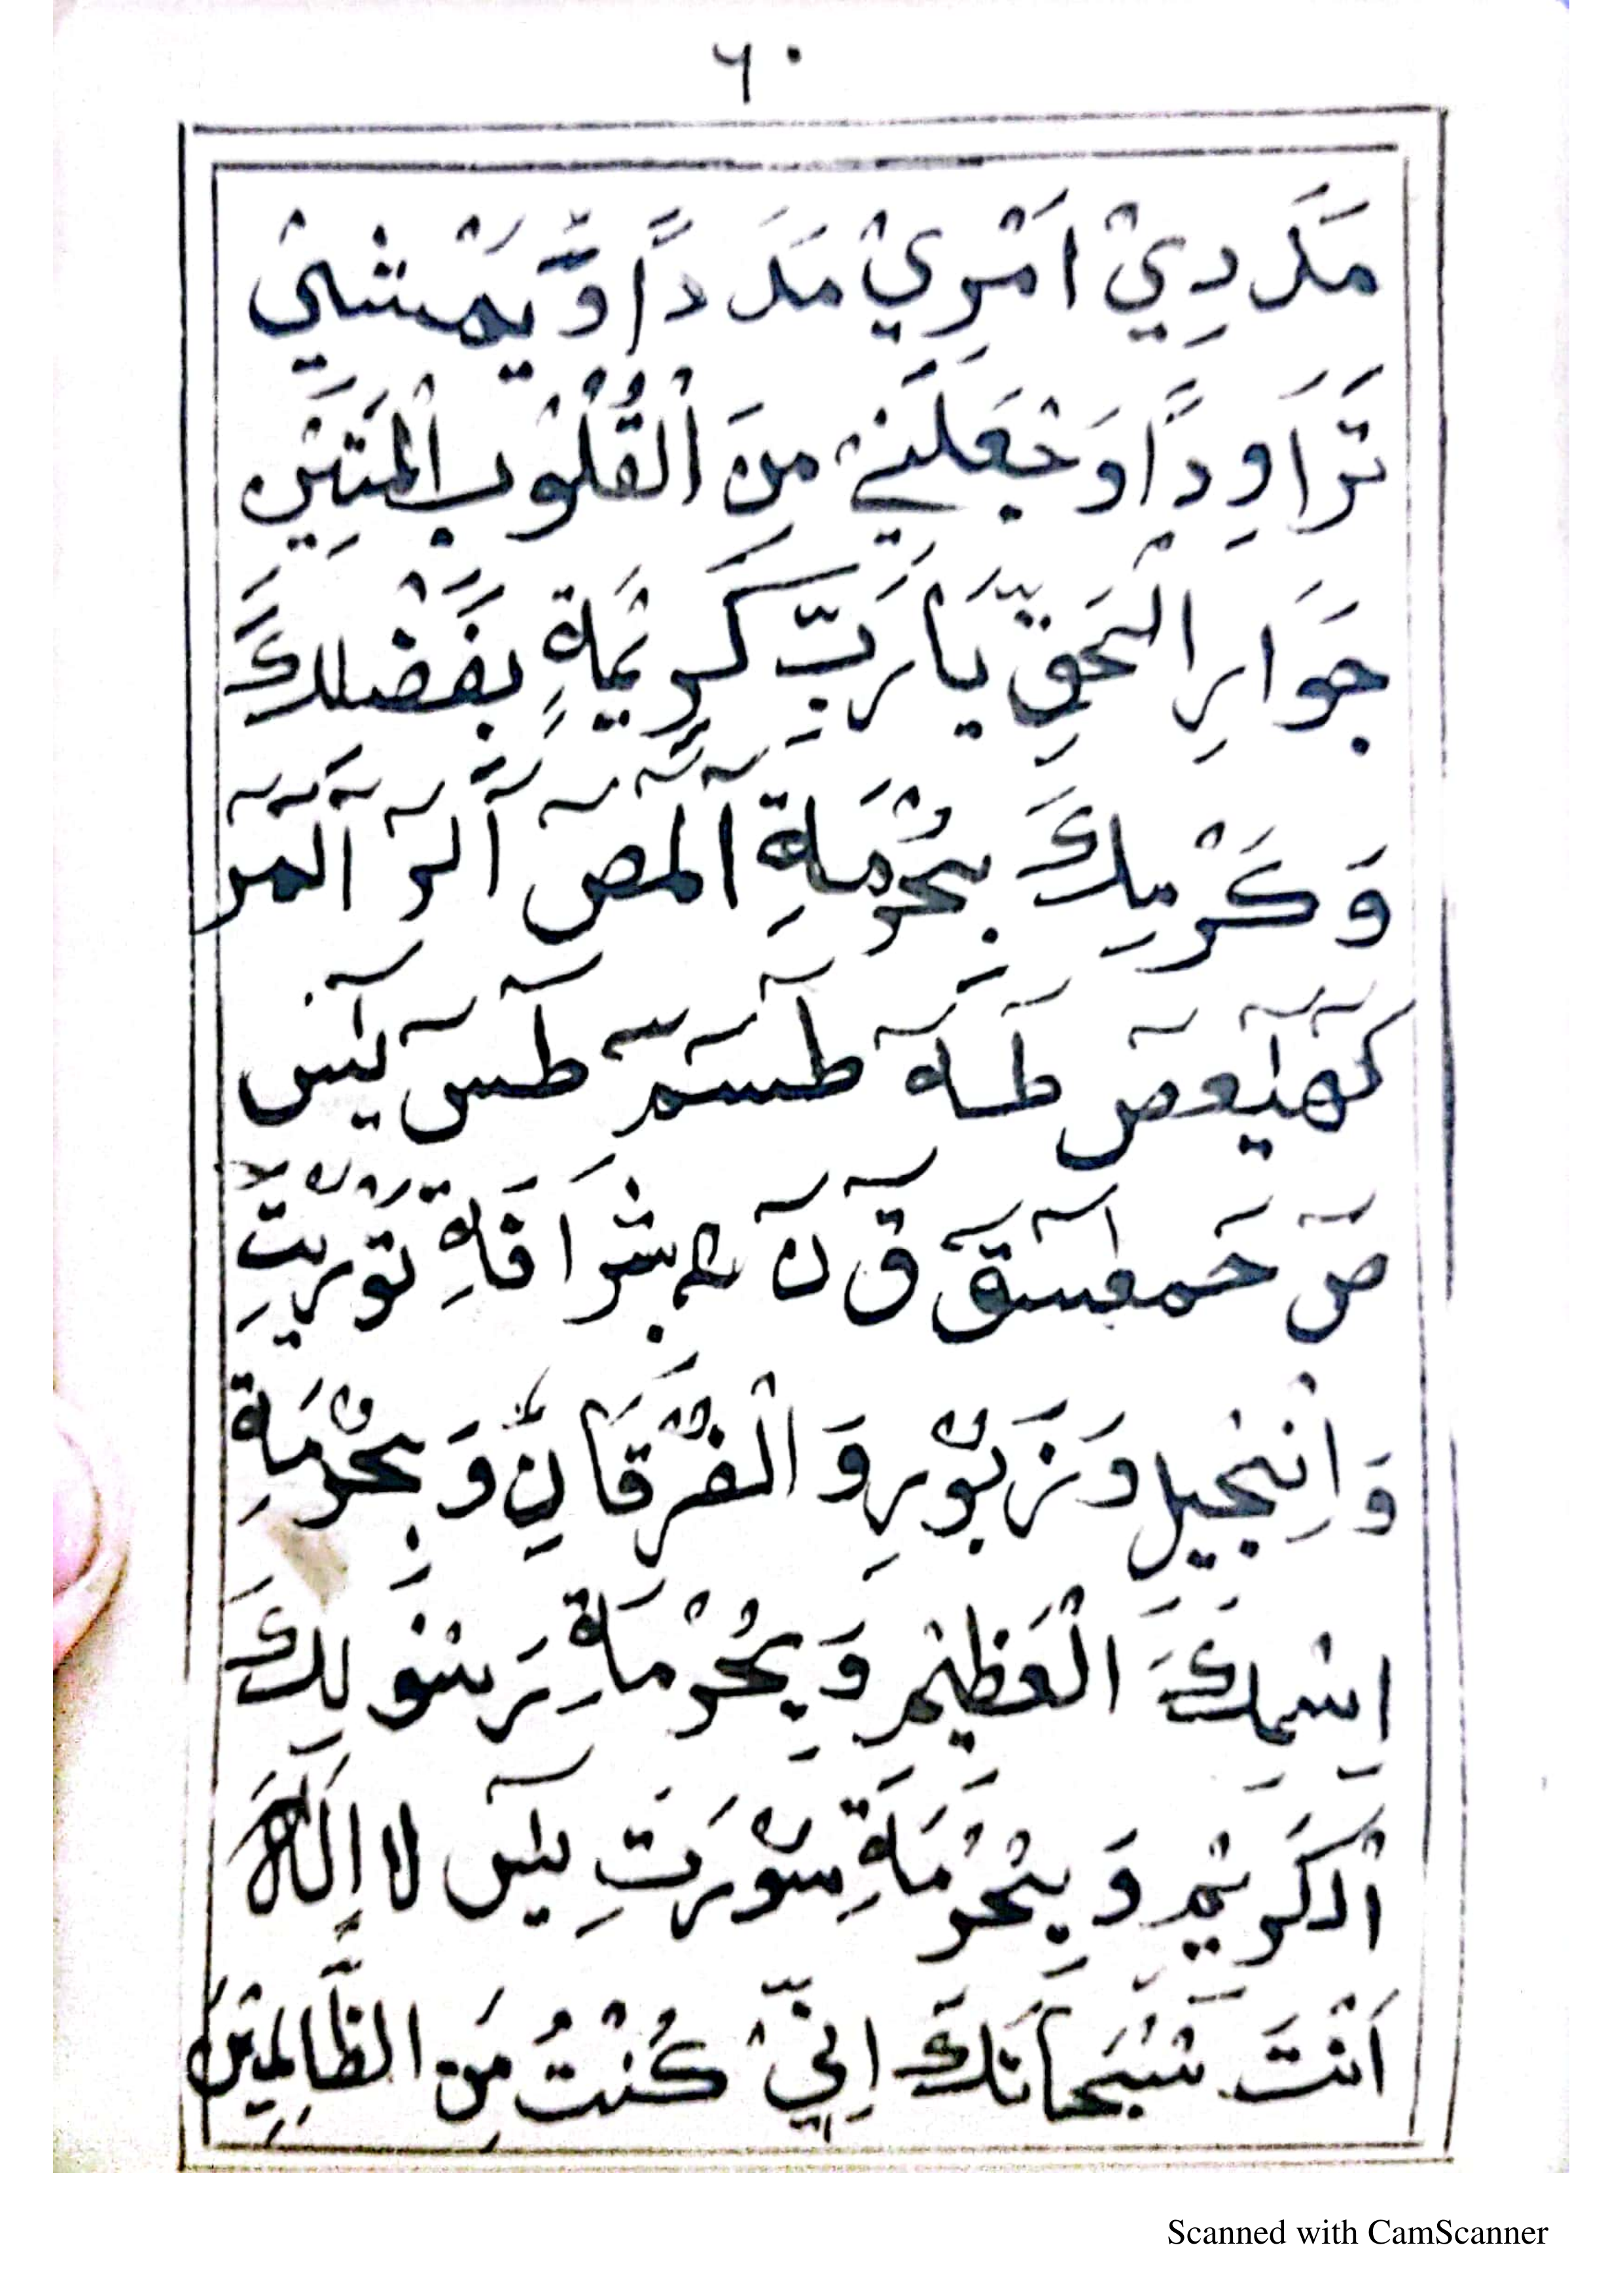 ٦٠
مَدَدِيْ اَمْرِيْ مَدَدًا وَّيَمْشِيْ
تَرَاوِدًا وَجْعَلَنِيْ مِنَ الْقُلُوْبِ الْمَتِيْنِ
جَوَارِ الْحَقِّ يَا رَبِّ كَرِيْمَةٍ بِفَضْلِكَ
وَكَرْمِكَ بِحُرْمَةِ آلٓمٓصٓ آلٓرٰ آلٓمٓرٰ
كٓهٰيٰعٓصٓ طٰهٰ طٰسٓمٓ طٰسٓ يٰسٓ
صٓ حٰمٓعٓسٓقٓ قٓ نٓ بِشَرَافَةِ تَوْرِيْتِ
وَاِنْجِيْلِ وَزَبُوْرِ وَالْفُرْقَانِ وَبِحُرْمَةِ
اِسْمِكَ الْعَظِيْمِ وَبِحُرْمَةِ رَسُوْلِكَ
الْكَرِيْمِ وَبِحُرْمَةِ سُوْرَتِ يٰسٓ لَا اِلٰهَ
اَنْتَ سُبْحَانَكَ اِنِّيْ كُنْتُ مِنَ الظَّالِمِيْنَ
Scanned with CamScanner